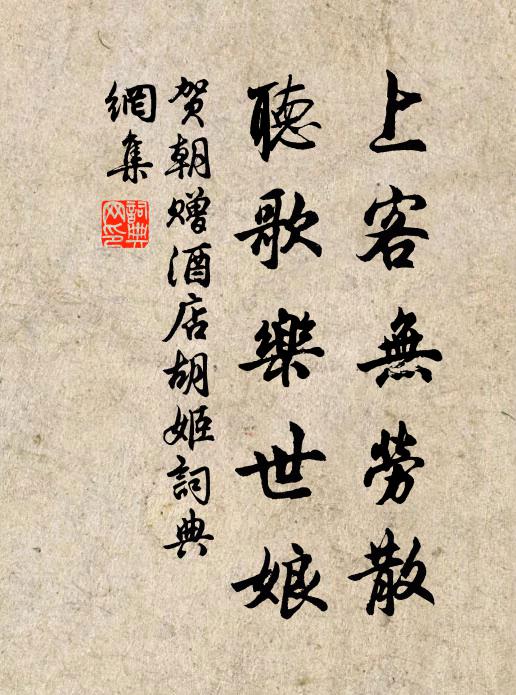 上客無勞散
聽歌樂世娘
賀朝贈酒店胡姬詞典
網集
詞典
网印